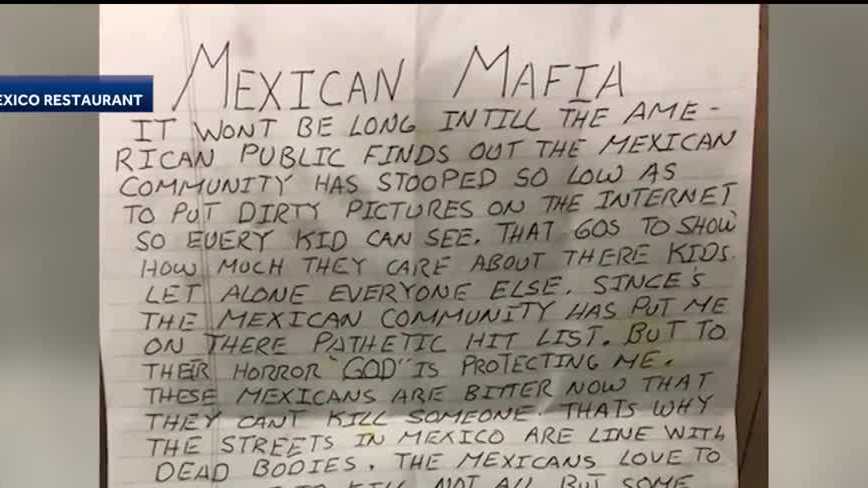 MEXICAN MAFIA
EXICO RESTAURANT
IT WONT BE LONG INTILL THE AME-
RICAN PUBLIC FINDS OUT THE MEXICAN
COMMUNITY HAS STOOPED SO LOW AS
TO PUT DIRTY PICTURES ON THE INTERNET
SO EVERY KID CAN SEE. THAT GOS TO SHOW
HOW MUCH THEY CARE ABOUT THERE KIDS.
LET ALONE EVERYONE ELSE. SINCE'S
THE MEXICAN COMMUNITY HAS PUT ME
ON THERE PATHETIC HIT LIST. BUT TO
THEIR HORROR "GOD" IS PROTECTING ME.
THESE MEXICANS ARE BITTER NOW THAT
THEY CANT KILL SOMEONE. THATS WHY
THE STREETS IN MEXICO ARE LINE WITH
DEAD BODIES. THE MEXICANS LOVE TO
TO KILL NOT ALL BUT SOME